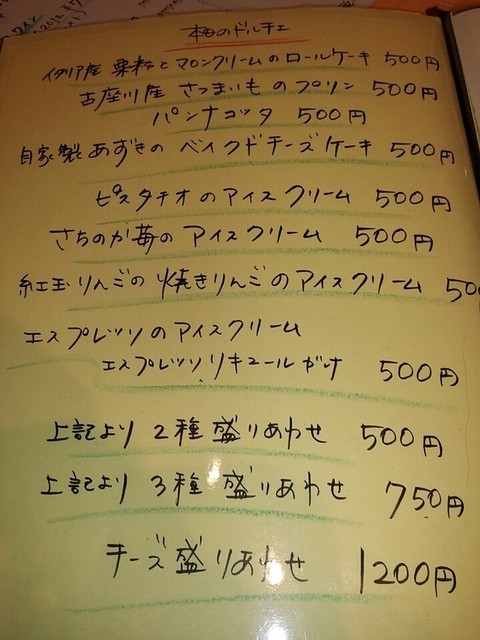 本日のドルチェ
イタリア産 栗粉とマロンクリームのロールケーキ 500円
古座川産 さつまいものプリン 500円
パンナコッタ 500円
自家製あずきの ベイクドチーズケーキ 500円
ピスタチオのアイスクリーム 500円
さちのか苺のアイスクリーム 500円
紅玉りんごの焼きりんごのアイスクリーム 50
エスプレッソのアイスクリーム
エスプレッソリキュールがけ 500円
上記より 2種盛りあわせ 500円
上記より 3種盛りあわせ 750円
チーズ盛りあわせ 1200円